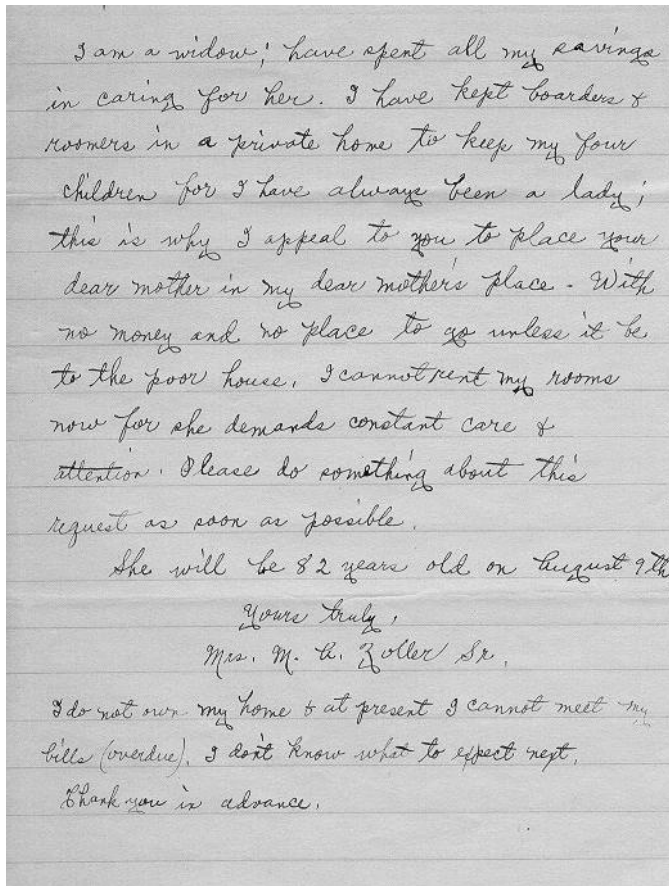 I am a widow; have spent all my savings
in caring for her. I have kept boarders &
roomers in a private home to keep my four
children for I have always been a lady;
this is why I appeal to you to place your
dear mother in my dear mother's place - With
no money and no place to go unless it be
to the poor house, I cannot rent my rooms
now for she demands constant care &
attention. Please do something about this
request as soon as possible.
She will be 82 years old on August 9th
Yours truly,
Mrs. M. A. Zoller Sr.
I do not own my home & at present I cannot meet my
bills (overdue). I don't know what to expect next.
Thank you in advance.